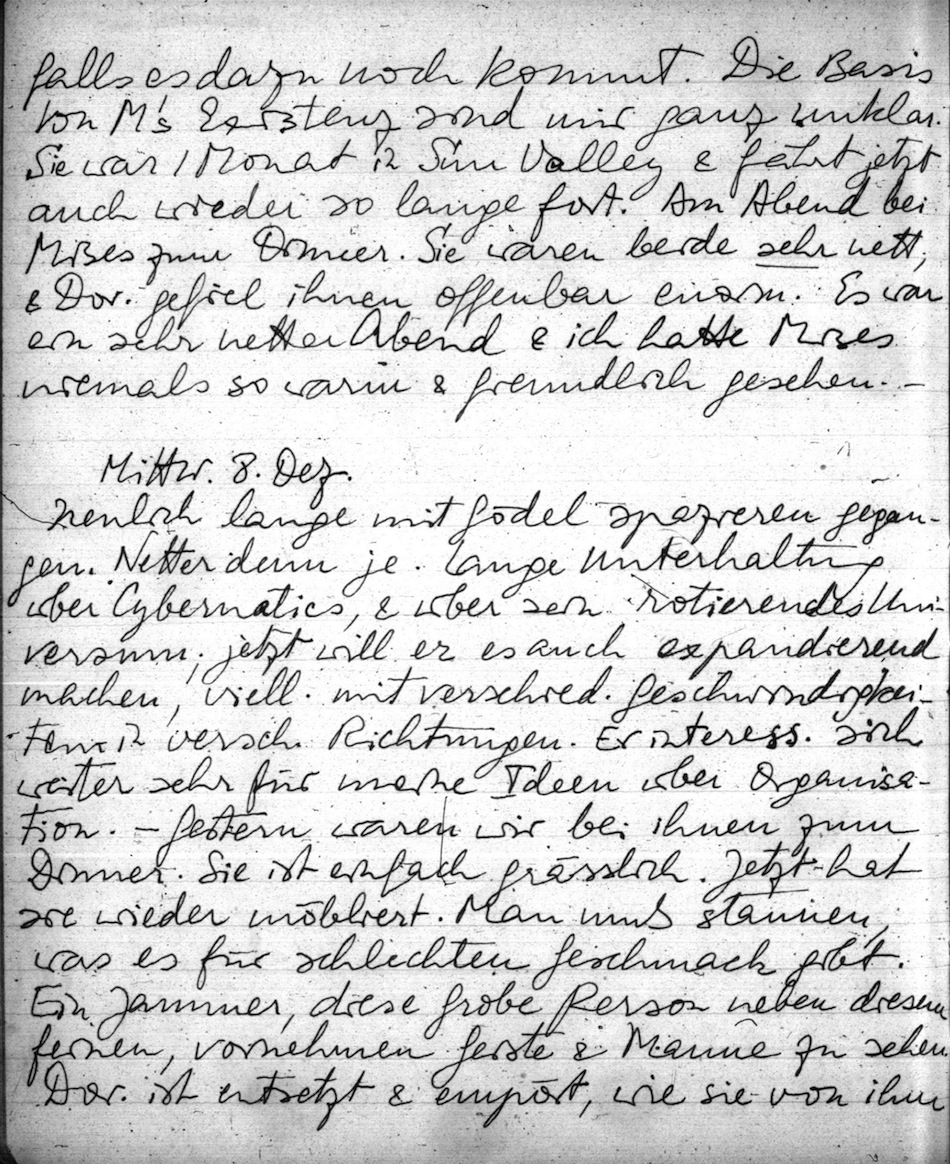 falls es dazu noch kommt. Die Basis
von M's Existenz sind mir ganz unklar.
Sie war 1 Monat in Sun Valley & fährt jetzt
auch wieder so lange fort. Am Abend bei
Mises zum Dinner. Sie waren beide sehr nett,
& Dor. gefiel ihnen offenbar enorm. Es war
ein sehr netter Abend & ich hatte Mises
niemals so warm & freundlich gesehen. –
Mittw. 8. Dez.
Ziemlich lange mit Gödel spazieren gegan-
gen. Netter denn je. Lange Unterhaltung
über Cybernatics, & über sein rotierendes Uni-
versum; jetzt will er es auch expandierend
machen, viell. mit verschied. Geschwindigkei-
ten in versch. Richtungen. Er interess. sich
weiter sehr für meine Ideen über Organisa-
tion. – Gestern waren wir bei ihnen zum
Dinner. Sie ist einfach grässlich. Jetzt hat
sie wieder möbliert. Man muß staunen,
was es für schlechten Geschmack gibt.
Ein Jammer, diese grobe Person neben diesem
feinen, vornehmen Geiste & Manne zu sehen
Dor. ist entsetzt & empört, wie sie von ihm